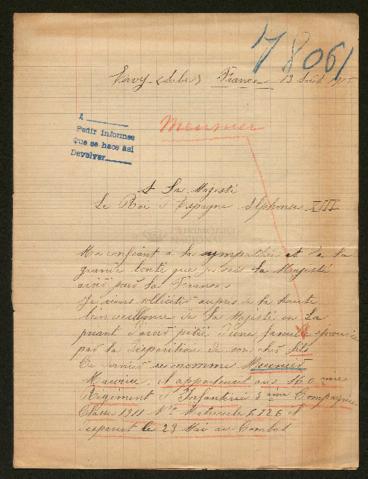 78061
Ervy (Aube) France 13 Août
A
Pedir informes
que se hace así
Devolver
Meunier
A Sa Majesté
Le Roi d'Espagne Alphonse XIII
Me confiant à la sympathie et de la
grande bonté que Sa Majesté
pour la France
Je viens solliciter auprès de la haute
bienveillance de Sa Majesté en La
priant d'avoir pitié d'une famille éprouvée
par la disparition de son cher fils
Ce dernier se nomme Meunier
Maurice. Il appartenait au ème
Régiment d'Infanterie Compagnie
Classe 1911 Nº Matricule 6726
le 23 Mai au Combat